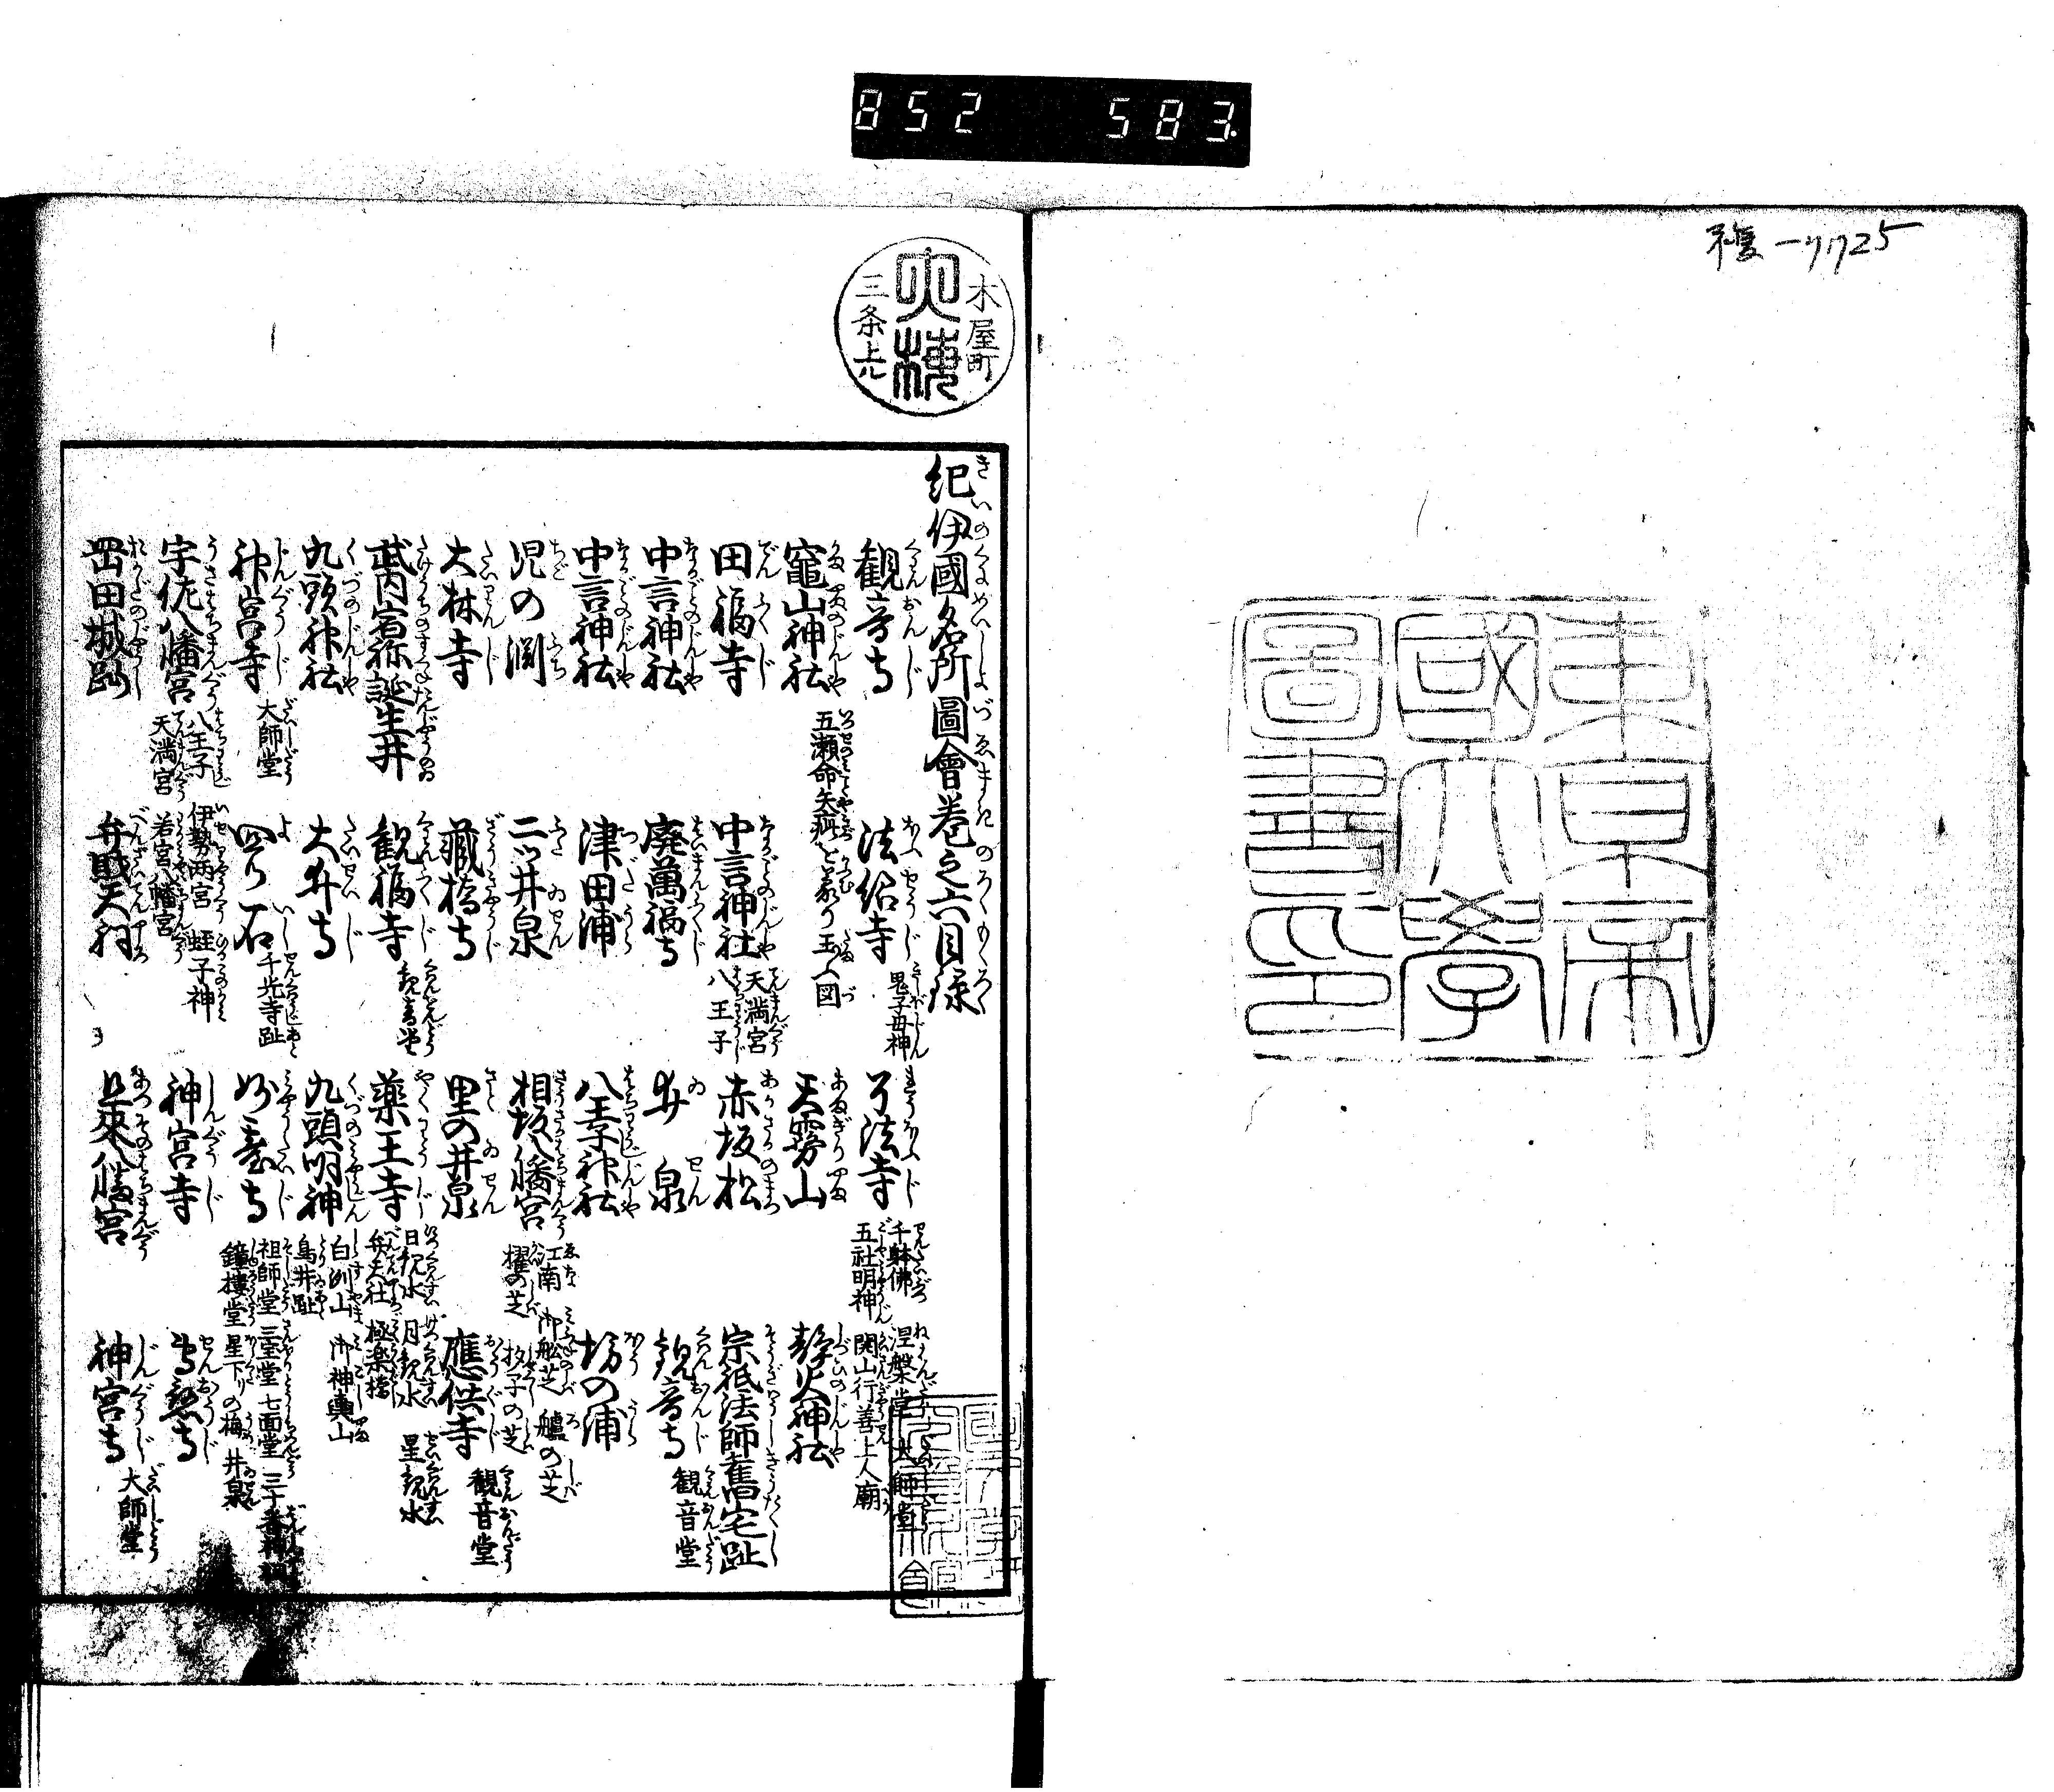 852 583.
東京帝
國大學
圖書印
木屋町
三条上ル
紀伊國名所圖會巻之六目録
観音寺
法紹寺 鬼子母神
了法寺 千躰佛 涅槃堂 大師堂
五社明神 開山行善上人廟
竈山神社 五瀬命矢疵を蒙り玉ふ図
天霧山
静火神社
田福寺
中言神社 天満宮 八王子
赤坂松
宗祇法師舊宅趾
中言神社
廃萬福寺
井泉
観音寺 観音堂
中言神社
津田浦
八王子神社
坊の浦
児の渕
二ツ井泉
相坂八幡宮 江南 御舩芝 艫の芝
櫂の芝 扚子の芝
大林寺
蔵橋寺
里の井泉
應供寺 観音堂
武内宿祢誕生井
観福寺 観音堂
薬王寺 日観水 月観水 星観水
弁天社 極楽橋
九頭神社
大井寺
九頭明神 白洲山 御神輿山
鳥井趾
神宮寺 大師堂
四ツ石 千光寺趾
妙臺寺 祖師堂 三宝堂 七面堂 三十番神祠
鐘楼堂 星下りの梅 井泉
宇佐八幡宮 八王子 伊勢両宮 蛭子神
天満宮 若宮八幡宮
神宮寺
岡田城趾
弁財天祠
且來八幡宮
神宮寺 大師堂